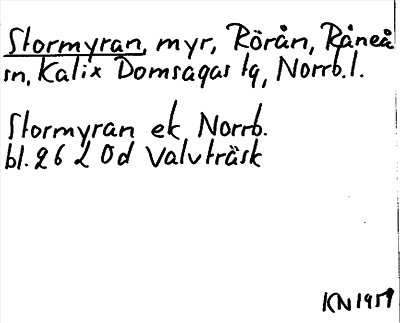 Stormyran, myr, Rörån, Råneå
sn, Kalix Domsagas tg, Norrb.l.
Stormyran ek Norrb.
bl. 26 L 0d Valvträsk
KN 1959